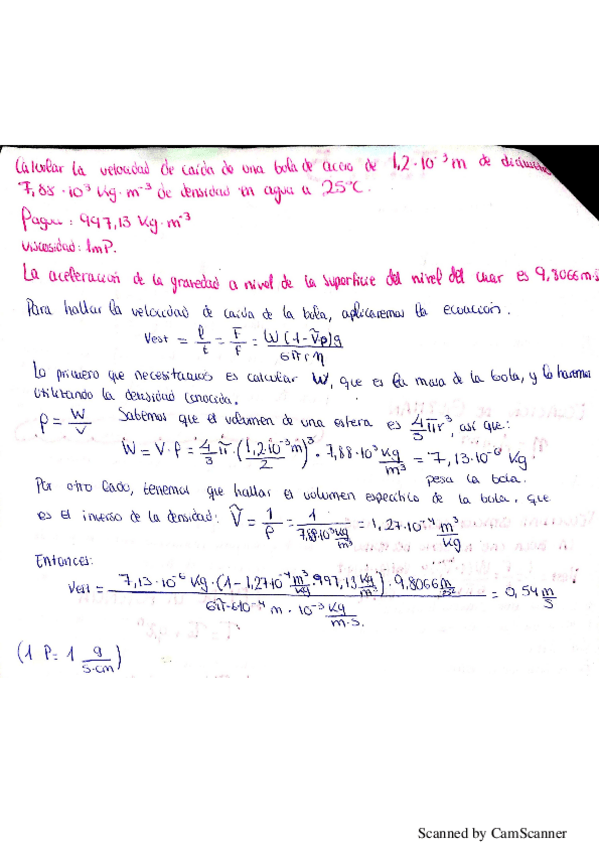 Calcular la velocidad de caída de una bola de acero de 1,2·10⁻³m de diámetro
7,88·10³ Kg·m⁻³ de densidad en agua a 25ºC.
ρagua: 997,13 Kg·m⁻³
Viscosidad: 1mP.
La aceleración de la gravedad a nivel de la superficie del nivel del mar es 9,8066 m·s
Para hallar la velocidad de caída de la bola, aplicaremos la ecuación.
Vest = ℓ/t = F/f = W(1-Ṽρ)g / 6πrη
Lo primero que necesitamos es calcular W, que es la masa de la bola, y lo haremos
utilizando la densidad conocida.
ρ = W/V Sabemos que el volumen de una esfera es 4/3 πr³, así que:
W = V·ρ = 4/3 π·(1,2·10⁻³m / 2)³ · 7,88·10³ Kg/m³ = 7,13·10⁻⁶ Kg
pesa la bola.
Por otro lado, tenemos que hallar el volumen específico de la bola, que
es el inverso de la densidad: Ṽ = 1/ρ = 1 / 7,88·10³ Kg/m³ = 1,27·10⁻⁴ m³/Kg
Entonces:
Vest = 7,13·10⁻⁶ Kg·(1-1,27·10⁻⁴ m³/Kg · 997,13 Kg/m³)·9,8066 m/s² / 6π·6·10⁻⁴ m · 10⁻³ Kg/m·s. = 0,54 m/s
(1 P = 1 g/s·cm)
Scanned by CamScanner